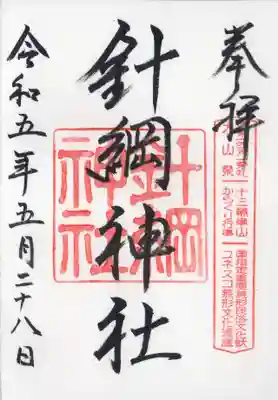 奉拝
十三輌車山
からくり行事
国指定重要無形民俗文化財
ユネスコ無形文化遺産
針綱神社
針綱
神社
令和五年五月二十八日